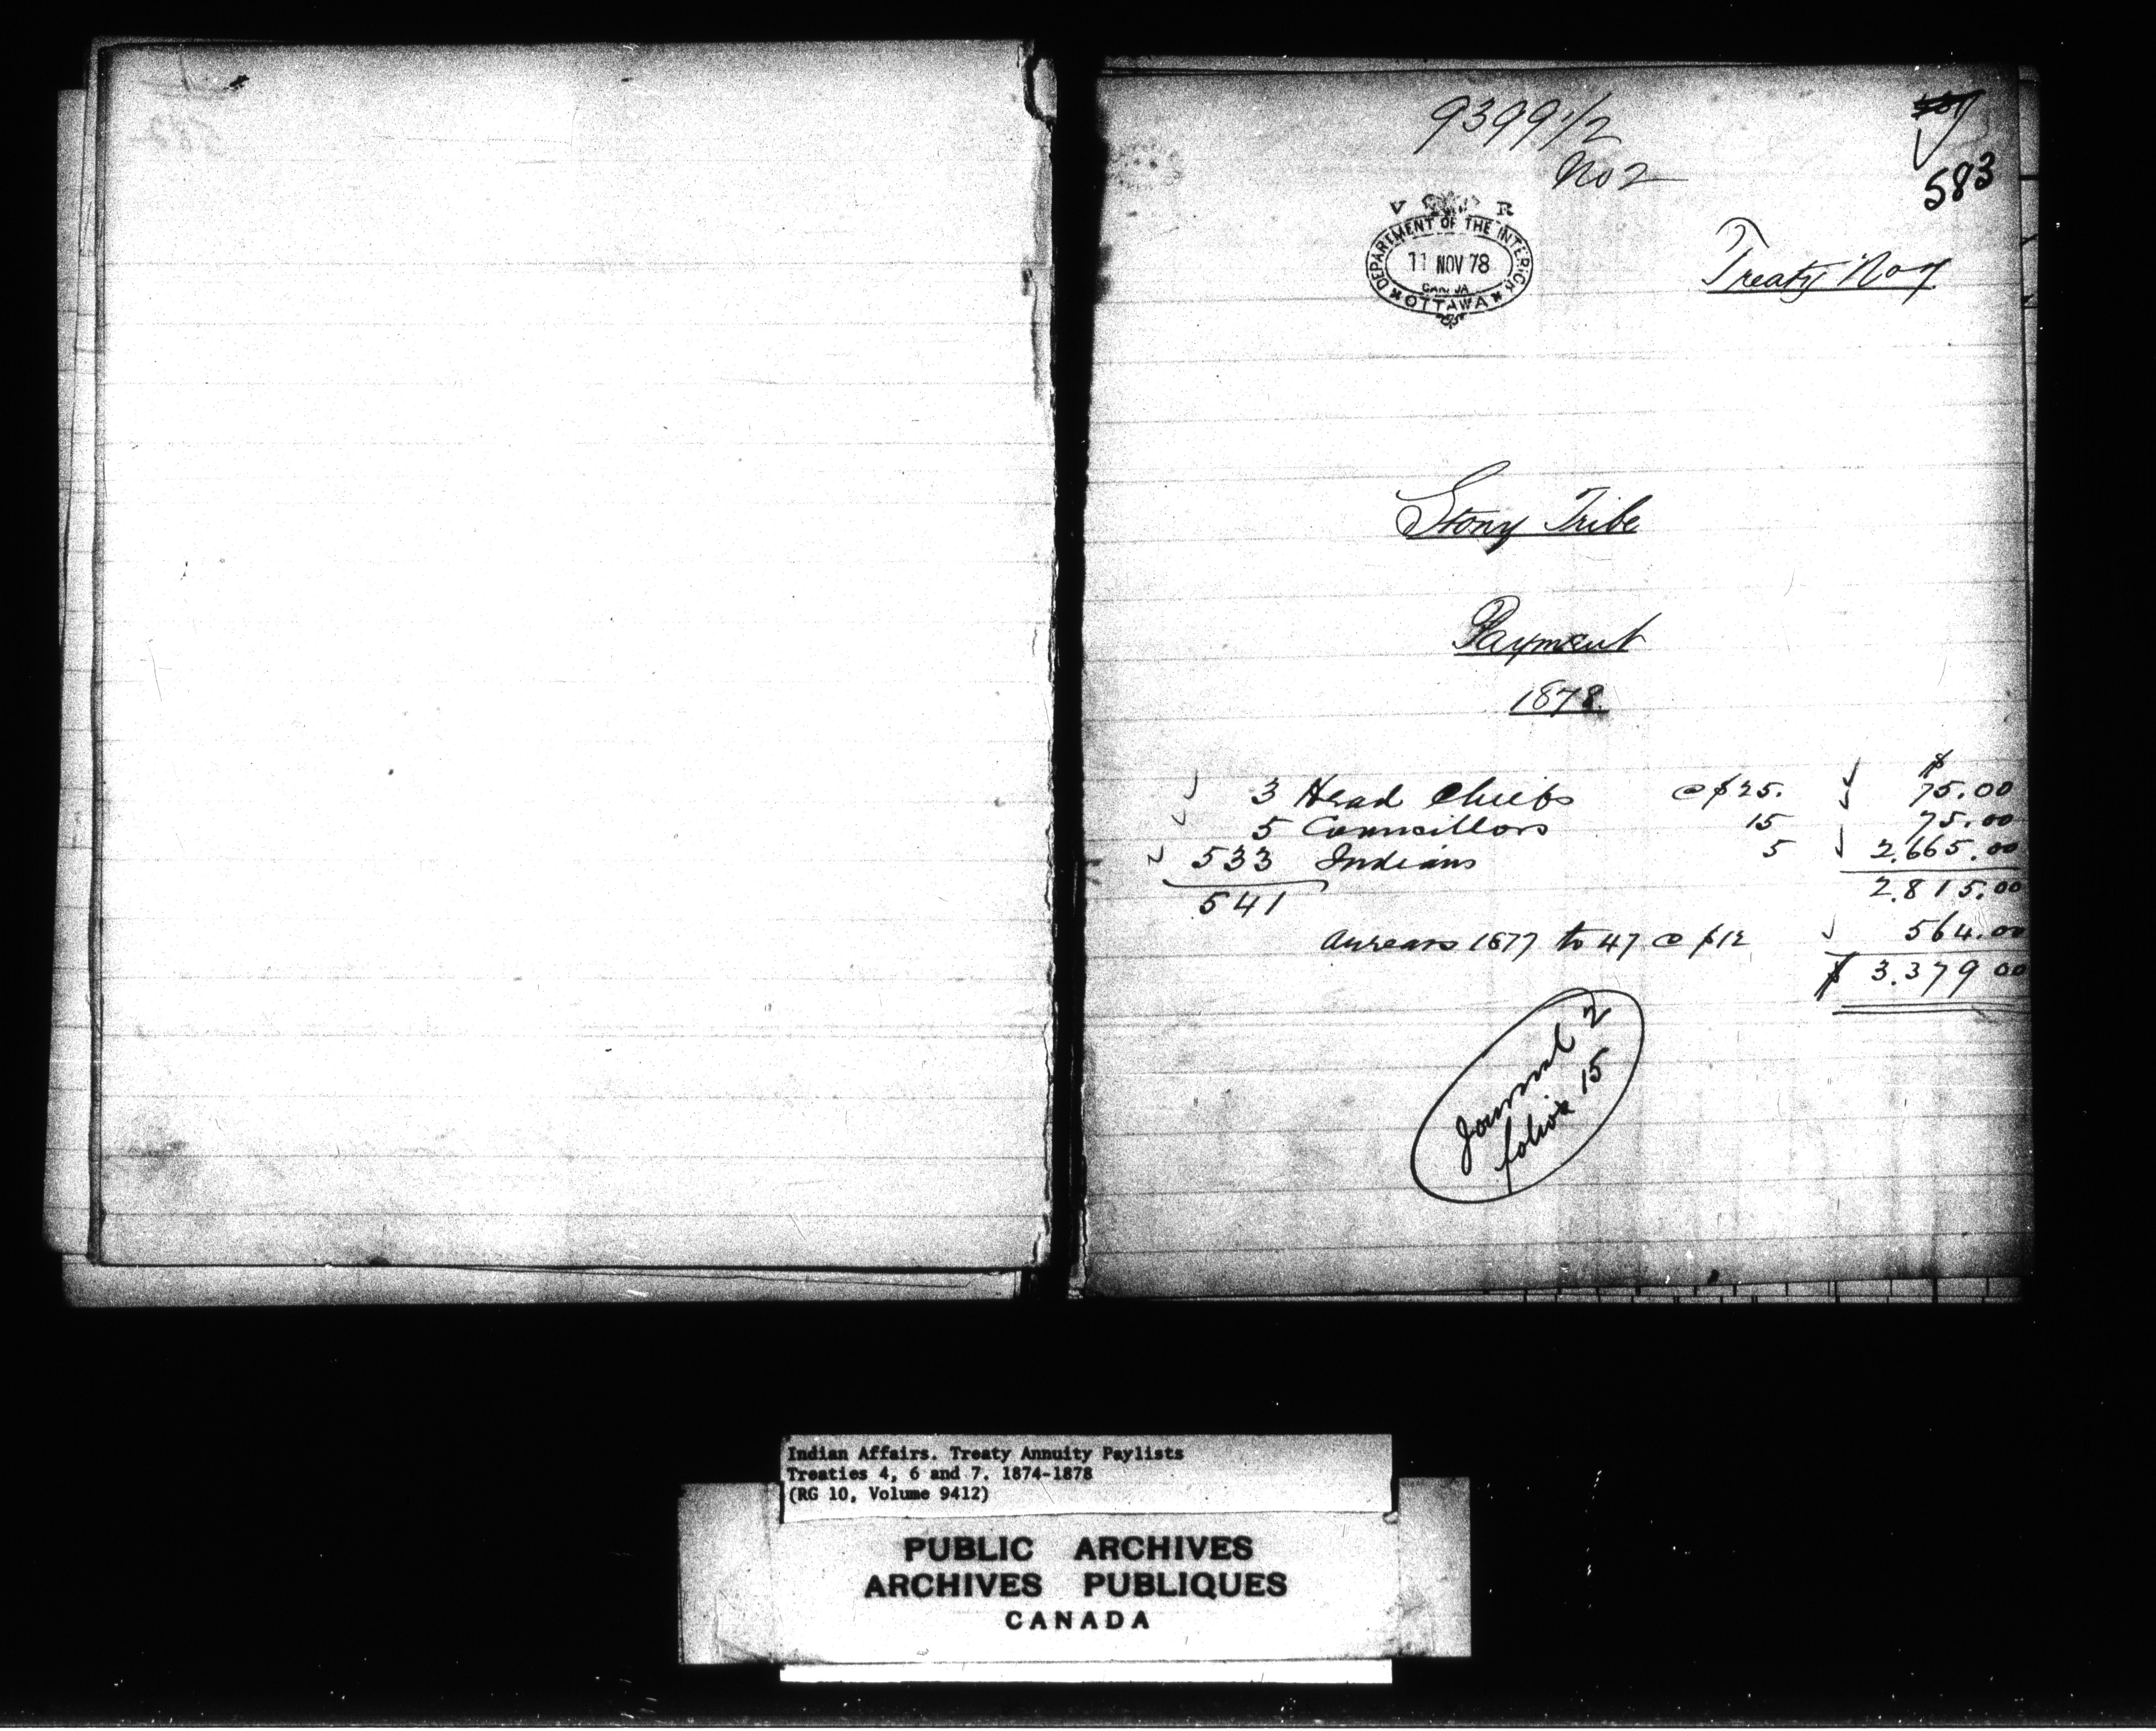 9399 1/2
No 2
583
V R
DEPARTMENT OF THE INTERIOR
11 NOV 78
CANADA
OTTAWA
Treaty No 7
Stony Tribe
Payment
1878.
$
3 Head Chiefs @ $25. 75.00
5 Councillors 15 75.00
533 Indians 5 2,665.00
541 2.815.00
Arrears 1877 to 47 @ $12 564.00
$ 3.379 00
Journal 2
folio 15
Indian Affairs. Treaty Annuity Paylists
Treaties 4, 6 and 7. 1874-1878
(RG 10, Volume 9412)
PUBLIC ARCHIVES
ARCHIVES PUBLIQUES
CANADA